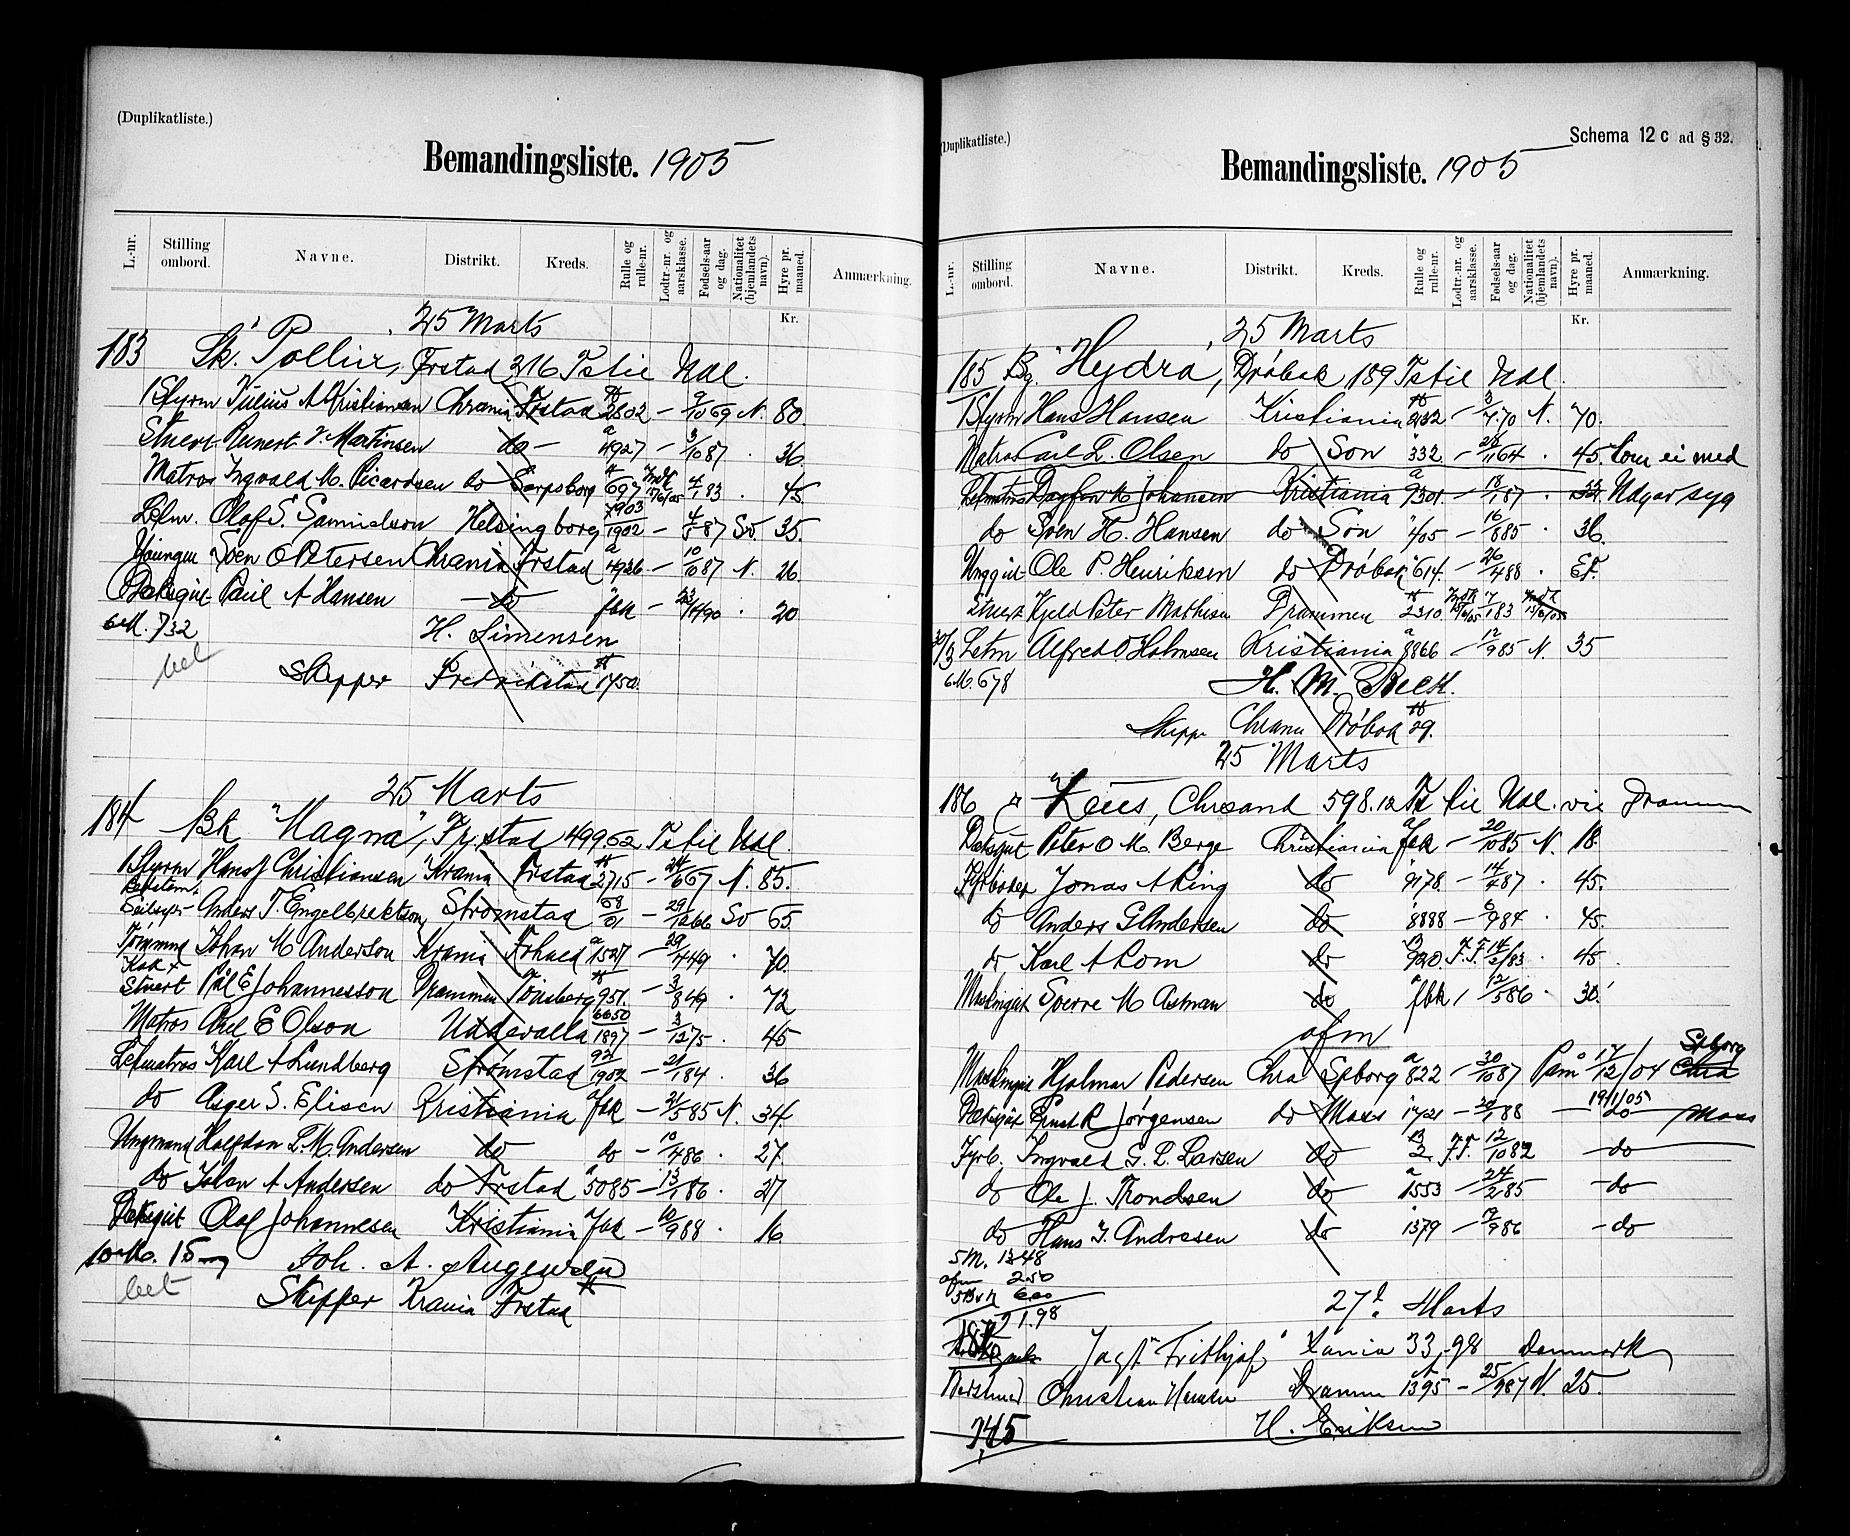 (Duplikatliste.)
Bemandingsliste. 1905
L.-nr. Stilling ombord. Navne. Distrikt. Kreds. Rulle og rulle-nr. Lodtr.-nr. og aarsklasse. Fødsels-aar og dag. Nationalitet (hjemlandets navn). Hyre pr. maaned. Anmærkning.
Kr.
25 Marts
183 Sk. "Pollux, Frstad 216 Ts til Udl.
1 Styrm Julius A Kristiansen Chrania Frstad 2802 – 9/10 69 N. 80.
Stuert Reinert V. Martinsen do – a 4927 – 3/10 87 . 36
Matros Ingvald M. Ricardsen do Sarpsborg 697 4/1 83 . 45
Letm. Olof S. Samuelson Helsingborg 7903/1902 – 4/5 87 Sv. 35.
Youngm Sven O Petersen Chrania Frstad a 4936 – 10/10 87 N. 26.
Dæksgut Paul A Hansen – do fbk – 23/4 90 . 20
6 M. 732
bet
H. Simensen
Skipper Fredrikstad 1750.
25 Marts
184 Bk "Magna", Frstad 499.52 Ts til Udl.
1 Styrm Hans J Christiansen Krania Frstad 2715 – 24/6 67 N. 85.
Seilskjr Anders T. Engelbrektson Strømstad 68/01 – 29/12 66 Sv 65.
Tømmmd Johan M Anderson Krania Frhald a 1527 – 29/4 49 . 70.
Kok +
Stuert Pål E Johannesson Drammen Tønsberg 951. – 3/8 49 . 72
Matros Axel E Olson Uddevalla 6650/1897 – 3/12 75 . 45
Letmatros Karl A Lundberg Strømstad 92/1902 – 21/1 84 . 36
do Asger S. Elisen Kristiania a fbk – 21/5 85 N. 34.
Ungmand Halfdan L. M. Andersen do do – 10/4 86 . 27.
do Johan A Andersen do Frstad a 5085 – 13/1 86 . 27
Dæksgut Olaf Johannesen Kristiania a fbk – 10/9 88 . 16
10 M. 15
bet
Joh. A. Augensen
Skipper Krania Frstad
(Duplikatliste.)
Schema 12 c ad § 32.
Bemandingsliste. 1905
L.-nr. Stilling ombord. Navne. Distrikt. Kreds. Rulle og rulle-nr. Lodtr.-nr. og aarsklasse. Fødsels-aar og dag. Nationalitet (hjemlandets navn). Hyre pr. maaned. Anmærkning.
Kr.
25 Marts
185 Bg. "Hydra", Drøbak 189 Ts til Udl.
1 Styrm Hans Hansen Kristiania 232 – 3/7 70 N. 70.
Matros Carl L. Olsen do Son 332 – 1 64 . 45. kom ei med
Letmatros Dagfin K Johansen Kristiania a 9301 – 13/1 87 . Udgar syg
do Sven H. Hansen do Son 405 – 16/8 85 . 36.
Unggut Ole P. Henriksen do Drøbak 614. – 26/4 88 .
Stuert Kjeld Peter Mathisen Drammen 2310 7/1 83
30/3 Letm Alfred O Holmsen Kristiania a 8866 – 12/9 85 N. 35
6 M. 678
H. M. Beck.
Skipp Chrania Drøbak 29.
25 Marts
186 "Zeus, Chrsand 598.12 Ts til Udl. via Drammen
Dæksgut Peter O M Berge Christiania a fbk – 20/10 85 N. 18.
Fyrbøder Jonas A Ring do 9178. – 14/4 87 . 45.
do Anders G Andersen do 8888 – 6/9 84 . 45.
do Karl A Rom do 920. F.F. 14/2 83 . 45 .
Maskingut Sverre M Astman do a fbk 12/5 86 . 30.
afm
Maskingut Hjalmar Pedersen Chra Spborg a 822 – 30/10 87 Paam 17/12/04 Chra Spborg
Dæksgut Ernst R Jørgensen do Moss 1721 – 20/1 88 – 19/1/05 do – Moss
Fyrb. Ingvald G. L. Larsen do 13 2. F.F. 12/10 82 – do
do Ole J. Trondsen do a 1553 – 24/2 85 – do
do Hans J. Andresen do 1379 – 17/9 86 – do
5 M. 1348
afm 250
600
21.98
27d. Marts
187 Jagt "Frithjof" Kania 33,98 Danmark
Bestmd Christian Dramm 1395 – 25/ 87 N. 25.
H. Eriksen
745